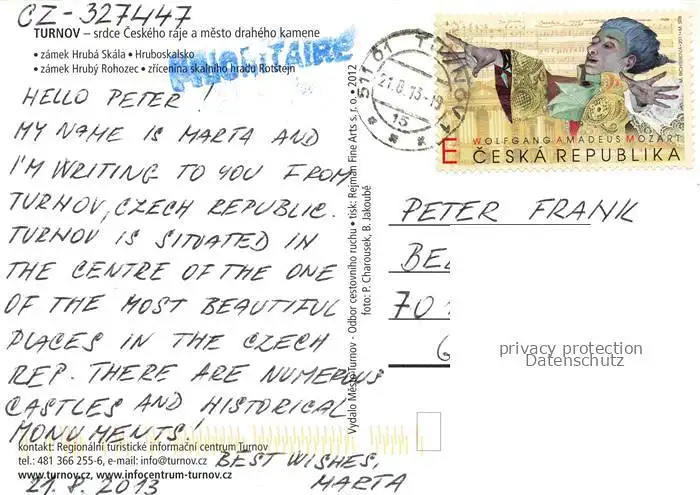 CZ-327447
TURNOV – srdce Českého ráje a město drahého kamene
• zámek Hrubá Skála • Hruboskalsko
• zámek Hrubý Rohozec • zřícenina skalního hradu Rotštejn
PRIORITAIRE
HELLO PETER!
MY NAME IS MARTA AND
I'M WRITING TO YOU FROM
TURNOV, CZECH REPUBLIC.
TURNOV IS SITUATED IN
THE CENTRE OF THE ONE
OF THE MOST BEAUTIFUL
PLACES IN THE CZECH
REP. THERE ARE NUMEROUS
CASTLES AND HISTORICAL
MONUMENTS!
BEST WISHES,
MARTA
21.8.2013
kontakt: Regionální turistické informační centrum Turnov
tel.: 481 366 255-6, e-mail: info@turnov.cz
www.turnov.cz, www.infocentrum-turnov.cz
Vydalo Město Turnov - Odbor cestovního ruchu • tisk: Rejman Fine Arts s. r. o. • 2012
foto: P. Charousek, B. Jakoubě
511 01 TURNOV 1
21.8.13-
15
WOLFGANG AMADEUS MOZART
E ČESKÁ REPUBLIKA
PETER FRANK
BE
70
privacy protection
Datenschutz